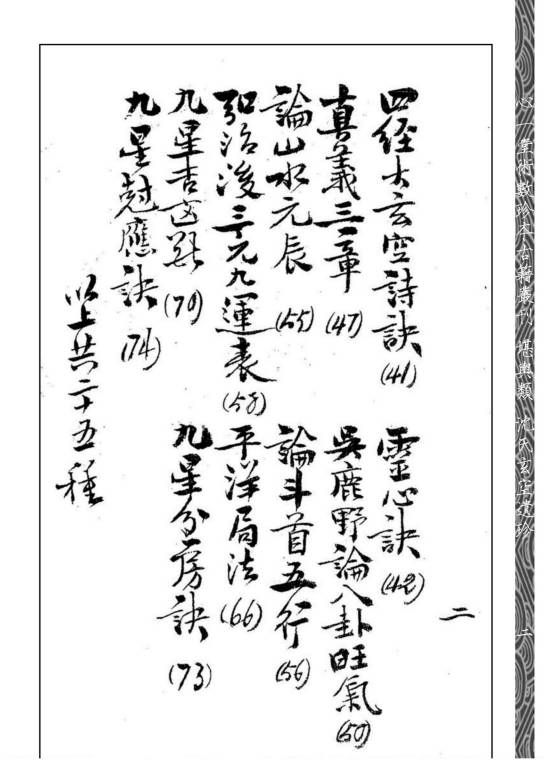 四經大玄空詩訣 (41)
靈心訣 (42)
真義三章 (47)
吳鹿野論八卦旺氣 (50)
論山水元辰 (55)
論斗首五行 (56)
弘治後三元九運表 (58)
平洋局法 (66)
九星吉凶 (70)
九星分房訣 (73)
九星尅應訣 (74)
以上共二十五種
二
心一堂術數珍本古籍叢刊 堪輿類 沈氏玄空遺珍
二